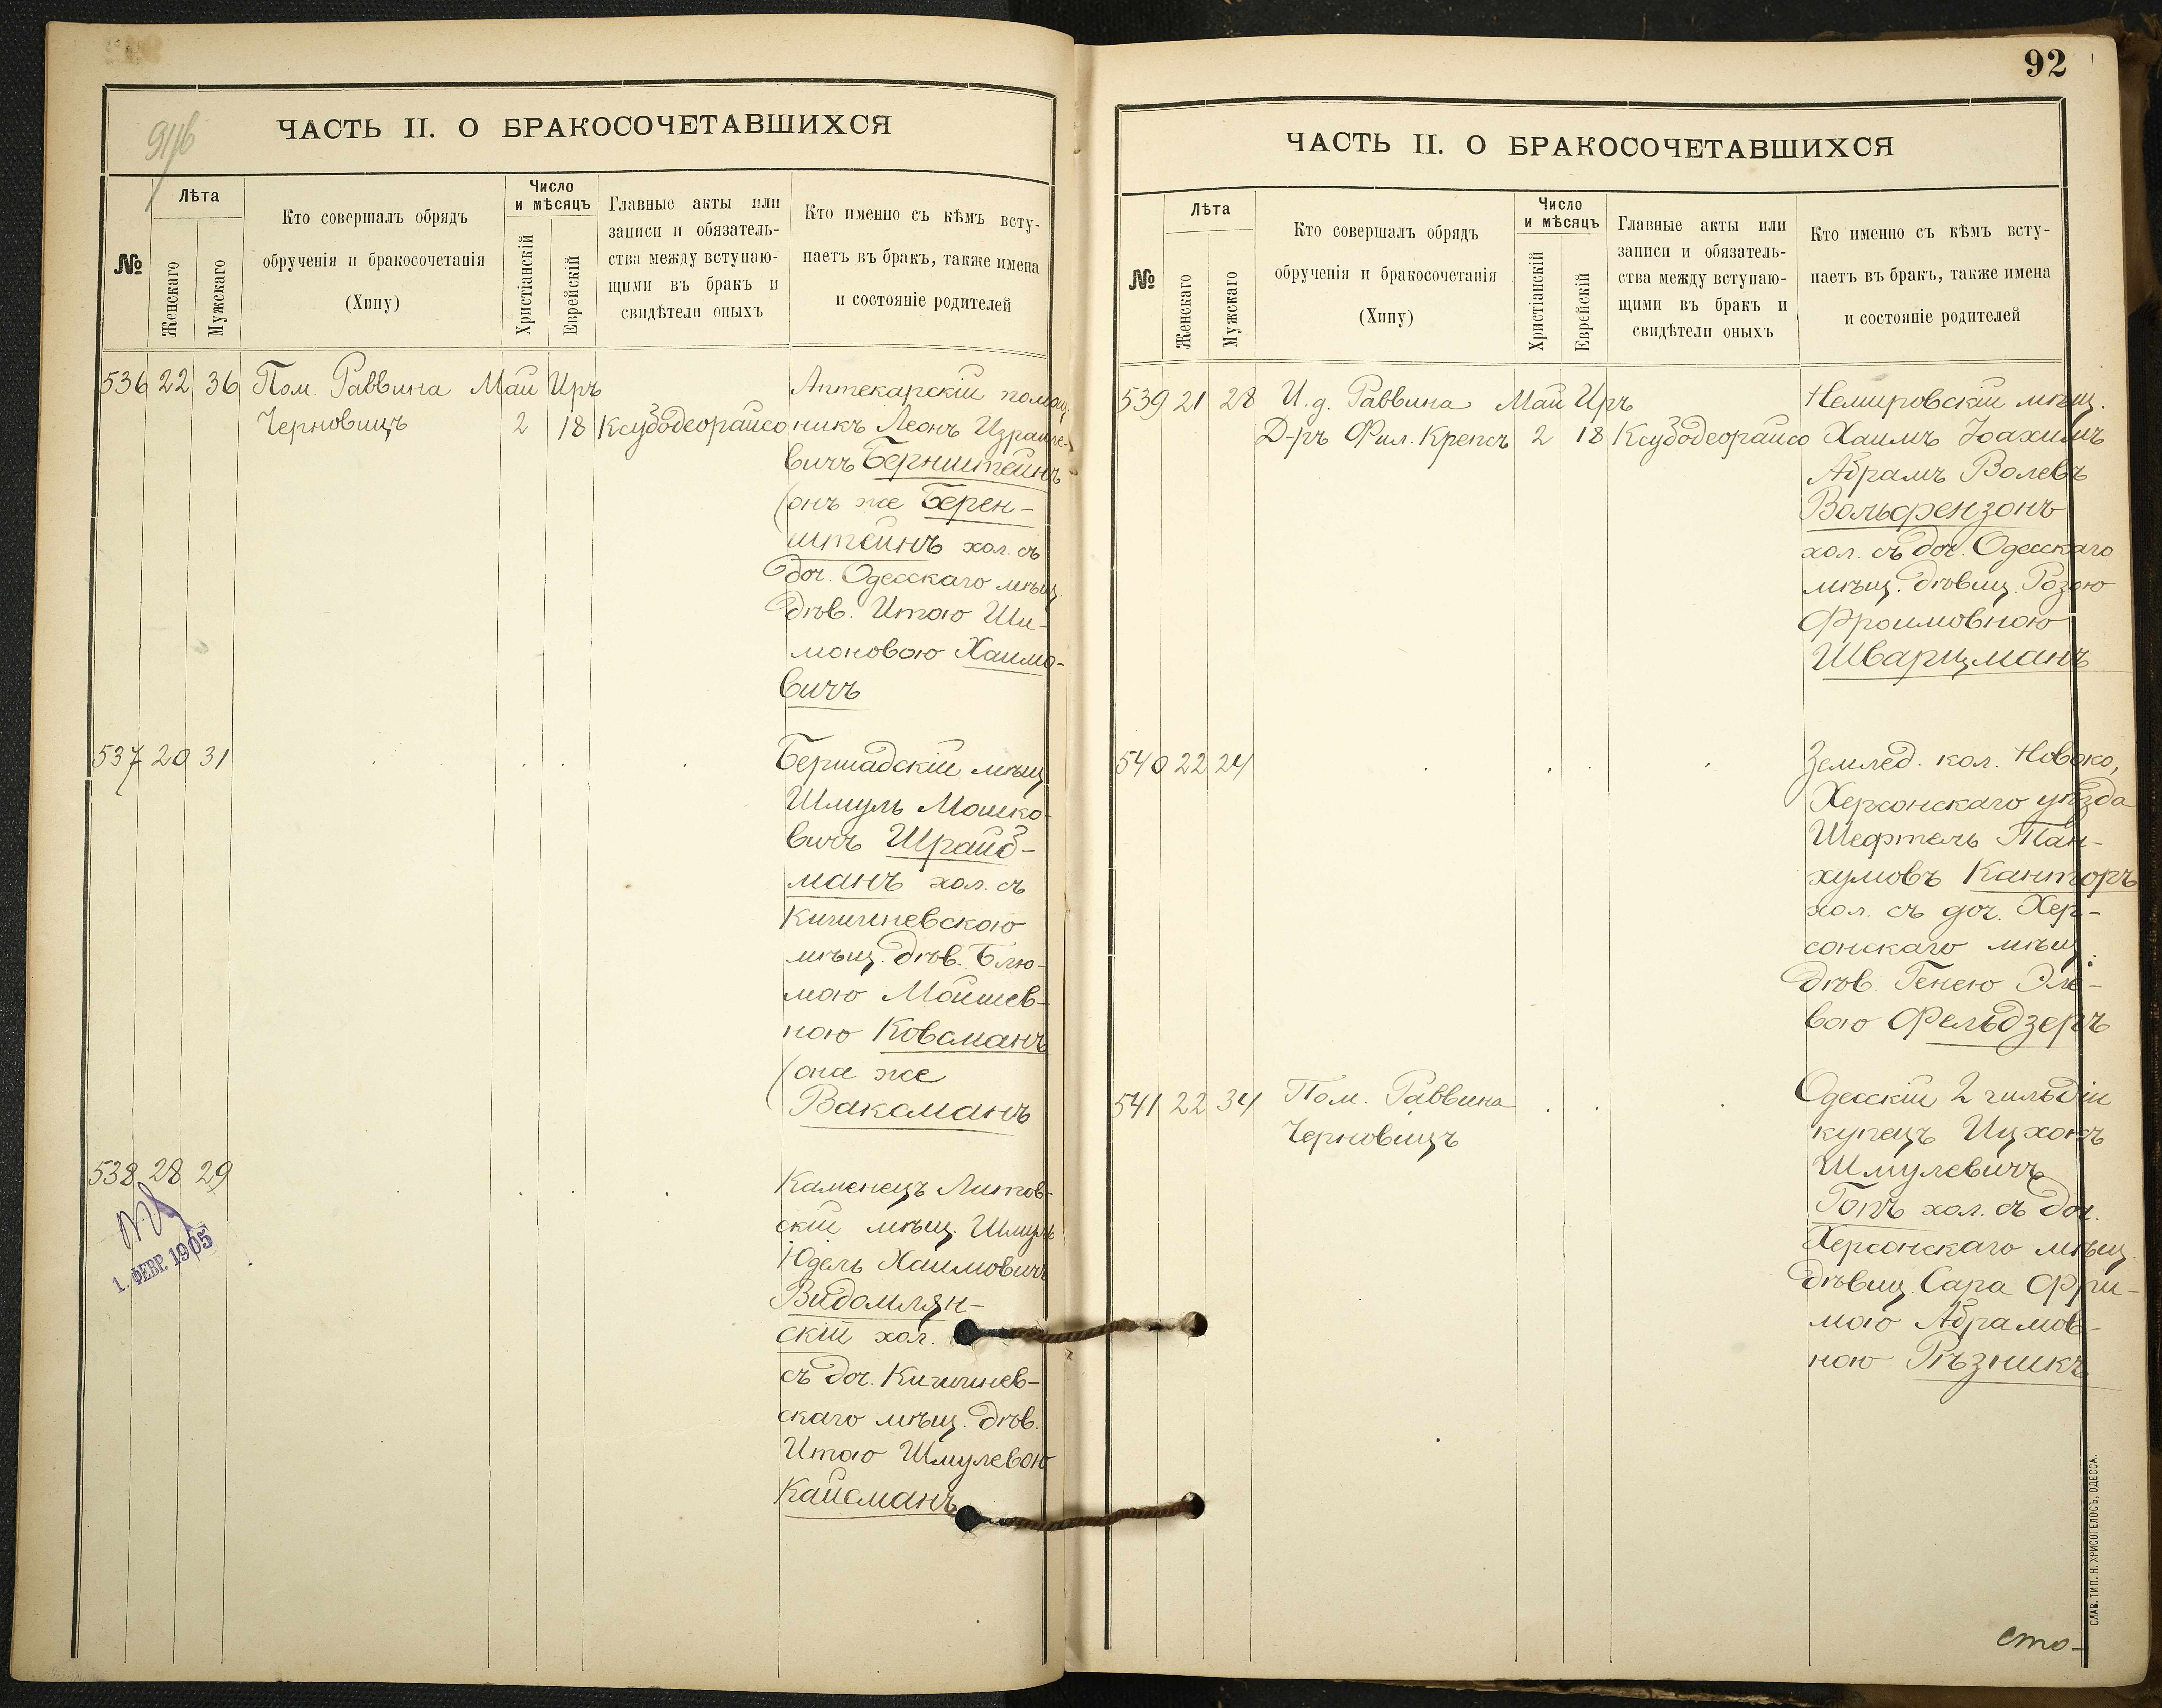 91/б
ЧАСТЬ II. О БРАКОСОЧЕТАВШИХСЯ
№
Лѣта
Женскаго
Мужскаго
Кто совершалъ обрядъ
обрученія и бракосочетанія
(Хипу)
Число
и мѣсяцъ
Христіанскій
Еврейскій
Главные акты или
записи и обязатель-
ства между вступаю-
щими въ бракъ и
свидѣтели оныхъ
Кто именно съ кѣмъ всту-
паетъ въ бракъ, также имена
и состояніе родителей
536 22 36 Пом. Раввина Май Иръ
Черновицъ 2 18 Ксубодеорайсо
Аптекарскій помощ.
никъ Леонъ Израиле-
вичъ Бернштейнъ
(онъ же Берен-
штейнъ хол. съ
доч. Одесскаго мѣщ.
дѣв. Итаю Ши-
моновою Хаимо-
вичъ
537 20 31
Бершадскій мѣщ.
Шмуль Мошко-
вичъ Шрайб-
манъ хол. съ
Кишиневскою
мѣщ. дѣв. Блю-
мою Мойшев-
ною Ковсманъ
(она же
Ваксманъ
538 28 29
1. ФЕВР. 1905
Каменецъ Литов-
скій мѣщ. Шмуль
Юдель Хаимовичъ
Видомлян-
скій хол.
съ доч. Кишинев-
скаго мѣщ. дѣв.
Итаю Шмулевою
Кайсманъ
92
ЧАСТЬ II. О БРАКОСОЧЕТАВШИХСЯ
№
Лѣта
Женскаго
Мужскаго
Кто совершалъ обрядъ
обрученія и бракосочетанія
(Хипу)
Число
и мѣсяцъ
Христіанскій
Еврейскій
Главные акты или
записи и обязатель-
ства между вступаю-
щими въ бракъ и
свидѣтели оныхъ
Кто именно съ кѣмъ всту-
паетъ въ бракъ, также имена
и состояніе родителей
539 21 28 И.д. Раввина Май Иръ
Д-ръ Фил. Крепсъ 2 18 Ксубодеорайсо
Немировскій мѣщ.
Хаимъ Іоахимъ
Абрамъ Волевъ
Вольфензонъ
хол. съ доч. Одесскаго
мѣщ. дѣвиц. Розою
Фроимовною
Шварцманъ
540 22 24
Землед. кол. Новоко,
Херсонскаго уѣзда
Шефтель Тан-
хумовъ Канторъ
хол. съ доч. Хер-
сонскаго мѣщ.
дѣв. Генею Эле-
вою Фельдзеръ
541 22 34 Пом. Раввина
Черновицъ
Одесскій 2 гильдіи
купецъ Ицхокъ
Шмулевичъ
Гопъ хол. съ доч.
Херсонскаго мѣщ.
дѣвиц. Сара Фри-
мою Абрамов-
ною Рѣзникъ
сто-
СЛАВ. ТИП. Н. ХРИСОГЕЛОСЪ, ОДЕССА.